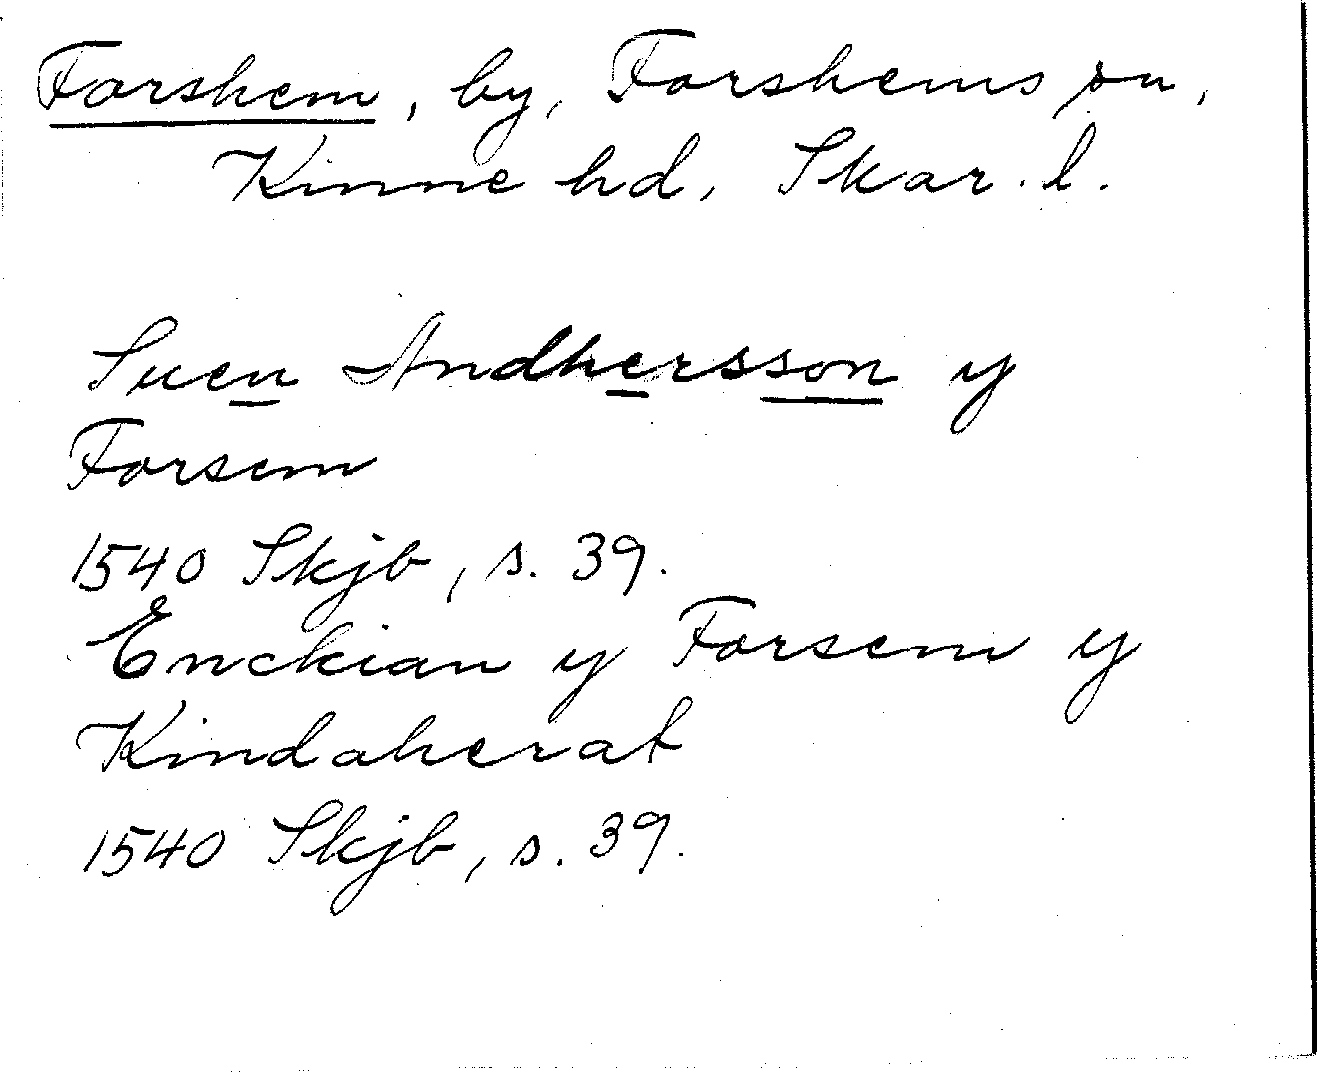 Forshem, by, Forshems sn,
Kinne hd, Skar. l.
Suen Andhersson y
Forsem
1540 Skjb, s. 39.
Enckian y Forsem y
Kindaherat
1540 Skjb, s. 39.